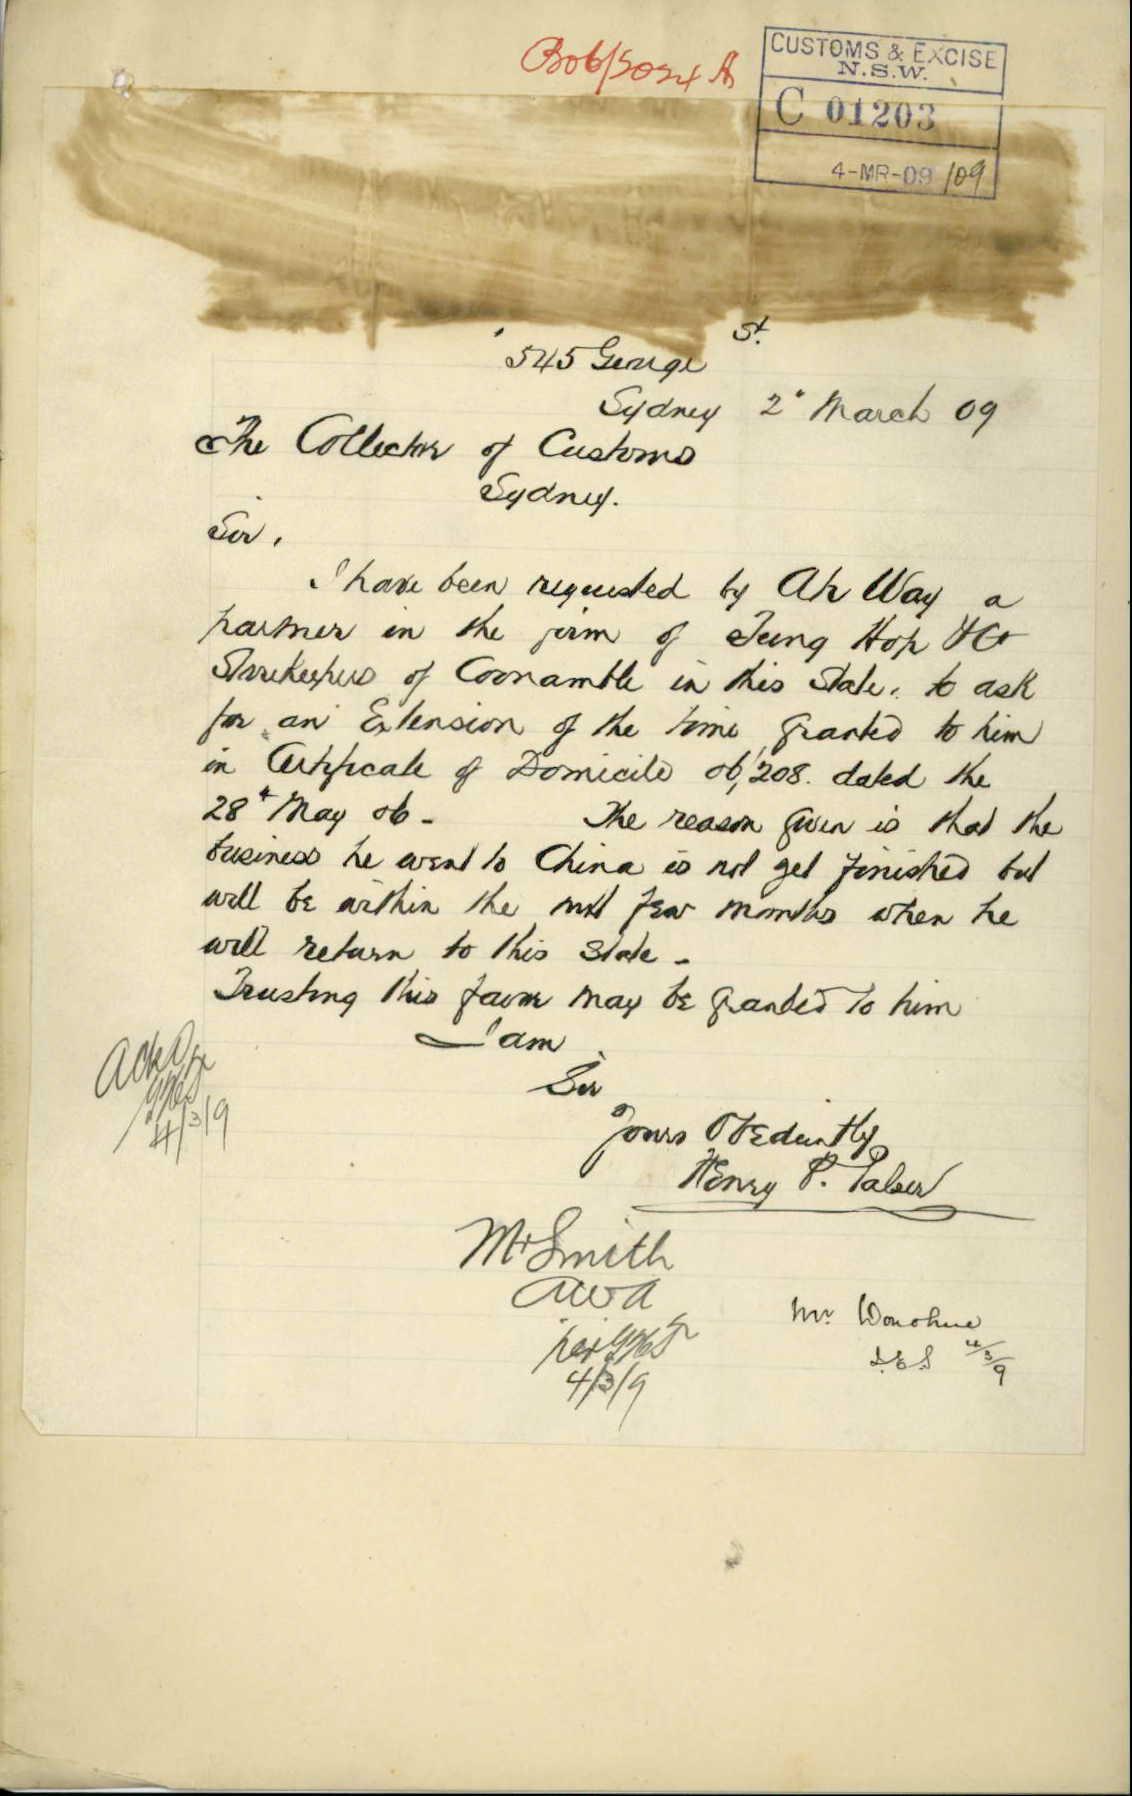 CUSTOMS & EXCISE
N.S.W.
C 01203
4-MR-09 /09
545 George St.
Sydney 2d March 09
The Collector of Customs
Sydney.
Sir,
I have been requested by Ah Way a
partner in the firm of Tung Hop & Co
Storekeepers of Coonamble in this State, to ask
for an Extension of the time granted to him
in Certificate of Domicile 06/208. dated the
28th May 06 - The reason given is that the
business he went to China is not yet finished but
will be within the next few months when he
will return to this State -
Trusting this favor may be granted to him
I am
Sir
Yours Obediently
Henry P. Taber
4/3/9
Mr Smith
4/3/9
Mr. Donohue
4/3/9